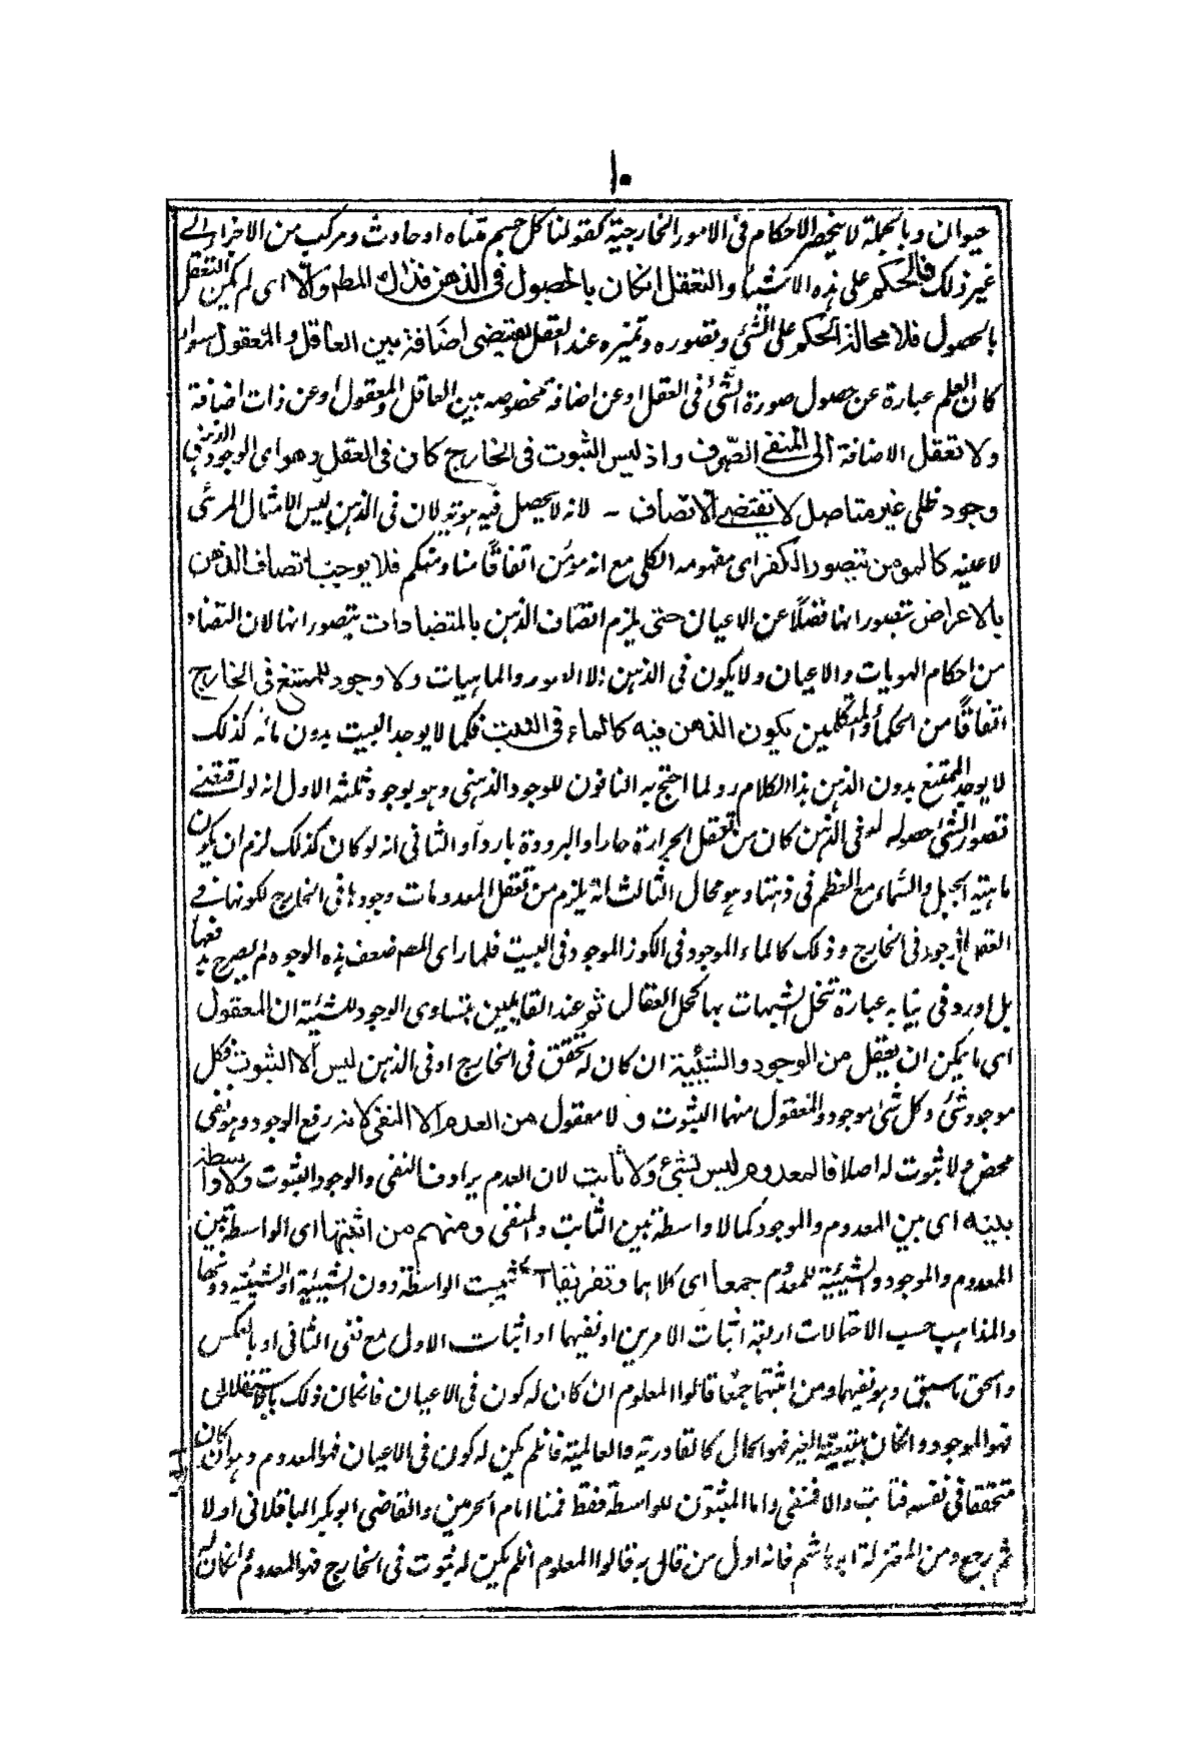 ١٠
حيوان وبالجملة لا ينحصر الاحكام فى الامور الخارجية كقولنا كل جسم متناه او حادث ومركب من الاجزاء الى
غير ذلك فالحكم على هذه الاشياء والتعقل ان كان بالحصول فى الذهن فذاك المط والا اى لم يكن التعقل
بالحصول فلا محالة الحكم على الشئ وتصوره وتميزه عند العقل يقتضى اضافة بين العاقل والمعقول سواء
كان العلم عبارة عن حصول صورة الشئ فى العقل او عن اضافة مخصوصه بين العاقل والمعقول او عن ذات اضافة
ولا تعقل الاضافة الى المنفى الصرف واذ ليس الثبوت فى الخارج كان فى العقل وهو اى الوجود الذهنى
وجود ظلى غير متاصل لا يقتضى الاتصاف - لانه لا يحصل فيه هويته لان فى الذهن ليس الا مثال المرئى
لا عينه كالمومن يتصور الكفر اى مفهومه الكلى مع انه مؤمن اتفاقًا منا ومنكم فلا يوجب اتصاف الذهن
بالاعراض بتصوراتها فضلًا عن الاعيان حتى يلزم اتصاف الذهن بالمتضادات بتصوراتها لان التضاد
من احكام الهويات والاعيان ولا يكون فى الذهن الا الصور والماهيات ولا وجود للممتنع فى الخارج
اتفاقًا من الحكماء والمتكلمين يكون الذهن فيه كالماء فى البيت فكما لا يوجد البيت بدون مائه كذلك
لا يوجد الممتنع بدون الذهن هذا الكلام رد لما احتج به النافون للوجود الذهنى وهو بوجوه ثلثه الاول انه لو اقتضى
تصور الشئ حصوله فى الذهن كان من تعقل الحرارة حارا والبرودة باردا والثانى انه لو كان كذلك لزم ان يكون
ماهية الجبل والسماء مع العظم فى ذهننا وهو محال الثالث انه يلزم من تعقل المعدومات وجودها فى الخارج لكونها فى
العقل الموجود فى الخارج وذلك كالماء الموجود فى الكوز الموجود فى البيت فلما راى المص ضعف هذه الوجوه لم يصرح بدفعها
بل اورد فى بيانه عبارة تنحل الشبهات بها كحل العقال ثم عند القايلين بتساوى الوجود للشيئية ان المعقول
اى ما يمكن ان يعقل من الوجود والشيئية ان كان له تحقق فى الخارج او فى الذهن ليس الا الثبوت فكل
موجود شئ وكل شئ موجود والمعقول منهما الثبوت ولا معقول من العدم الا النفى لانه رفع الوجود وهو نفى
محض ولا ثبوت له اصلا فالمعدوم ليس بشئ ولا ثابت لان العدم يرادف النفى والوجود الثبوت ولا واسطة
بينه اى بين المعدوم والموجود كما لا واسطة بين الثابت والمنفى ومنهم من اثبتها اى الواسطة بين
المعدوم والموجود والشيئية للمعدوم جمعا اى كلاهما وتفريقا اى يثبت الواسطة دون الشيئية او الشيئية دونها
والمذاهب حسب الاحتمالات اربعة اثبات الامرين او نفيهما او اثبات الاول مع نفى الثانى او بالعكس
والحق ما سبق وهو نفيهما ومن اثبتهما جمعًا قالوا المعلوم ان كان له كون فى الاعيان فان كان ذلك بالاستقلال
فهو الموجود وان كان بتبعية الغير فهو الحال كالقادرية والعالمية فان لم يكن له كون فى الاعيان فهو المعدوم وهو ان كان
متحققا فى نفسه فثابت والا فمنفى واما المثبتون للواسطة فقط فمنا امام الحرمين والقاضى ابو بكر الباقلانى اولا
ثم رجع ومن المعتزلة ابو هاشم فانه اول من قال به قالوا المعلوم ان لم يكن له ثبوت فى الخارج فهو المعدوم وان كان له